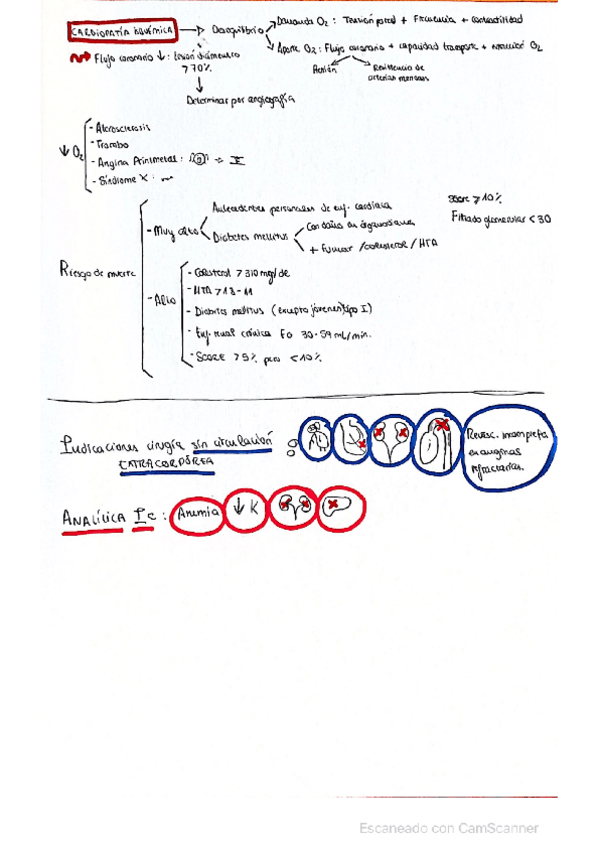 CARDIOPATÍA ISQUÉMICA → Desequilibrio
Demanda O₂ : Tensión pared + Frecuencia + contractilidad
Aporte O₂ : Flujo coronario + capacidad transporte + O₂
Resistencia de
arterias menores
Flujo coronario ↓ : lesión
> 70%
Determinar por angiografía
↓ O₂
- Aterosclerosis
- Trombo
- Angina Prinzmetal :
- Síndrome X :
Riesgo de muerte
- Muy alto
Antecedentes personales de enf. cardíaca
Diabetes mellitus
Con daños en órganos diana
+ Fumar / colesterol / HTA
Score ≥ 10%
Filtrado glomerular < 30
- Alto
- Colesterol > 310 mg/dl
- HTA > 18-11
- Diabetes mellitus (excepto jóvenes tipo I)
- Enf. renal crónica FG 30-59 mL/min.
- SCORE > 5% pero < 10%
Indicaciones cirugía sin circulación
EXTRACORPÓREA
Revasc. incompleta
en anginas
refractarias.
ANALÍTICA IC : Anemia ↓ K
Escaneado con CamScanner